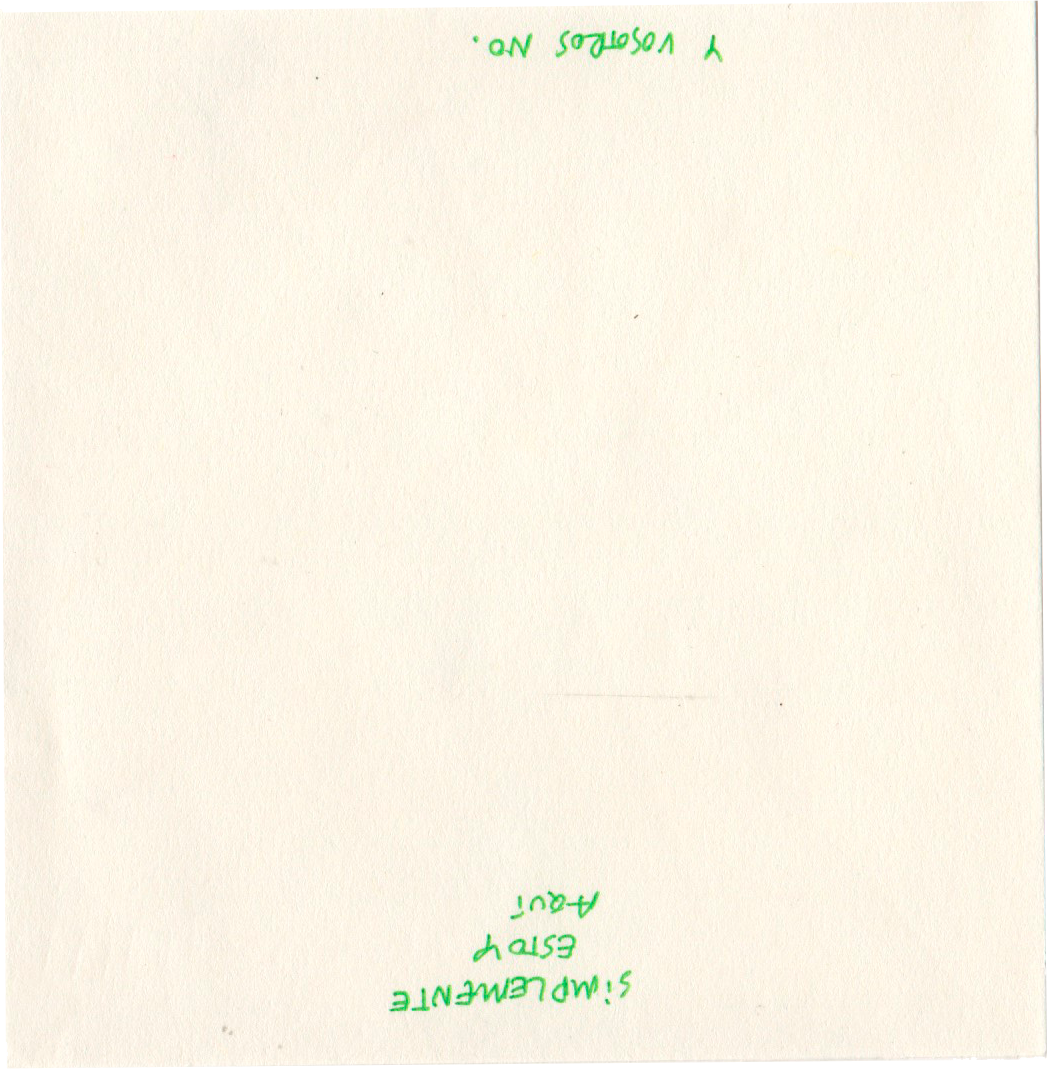 SiMPLEMENTE
ESTOY
AQUÍ
Y VOSOTROS NO.